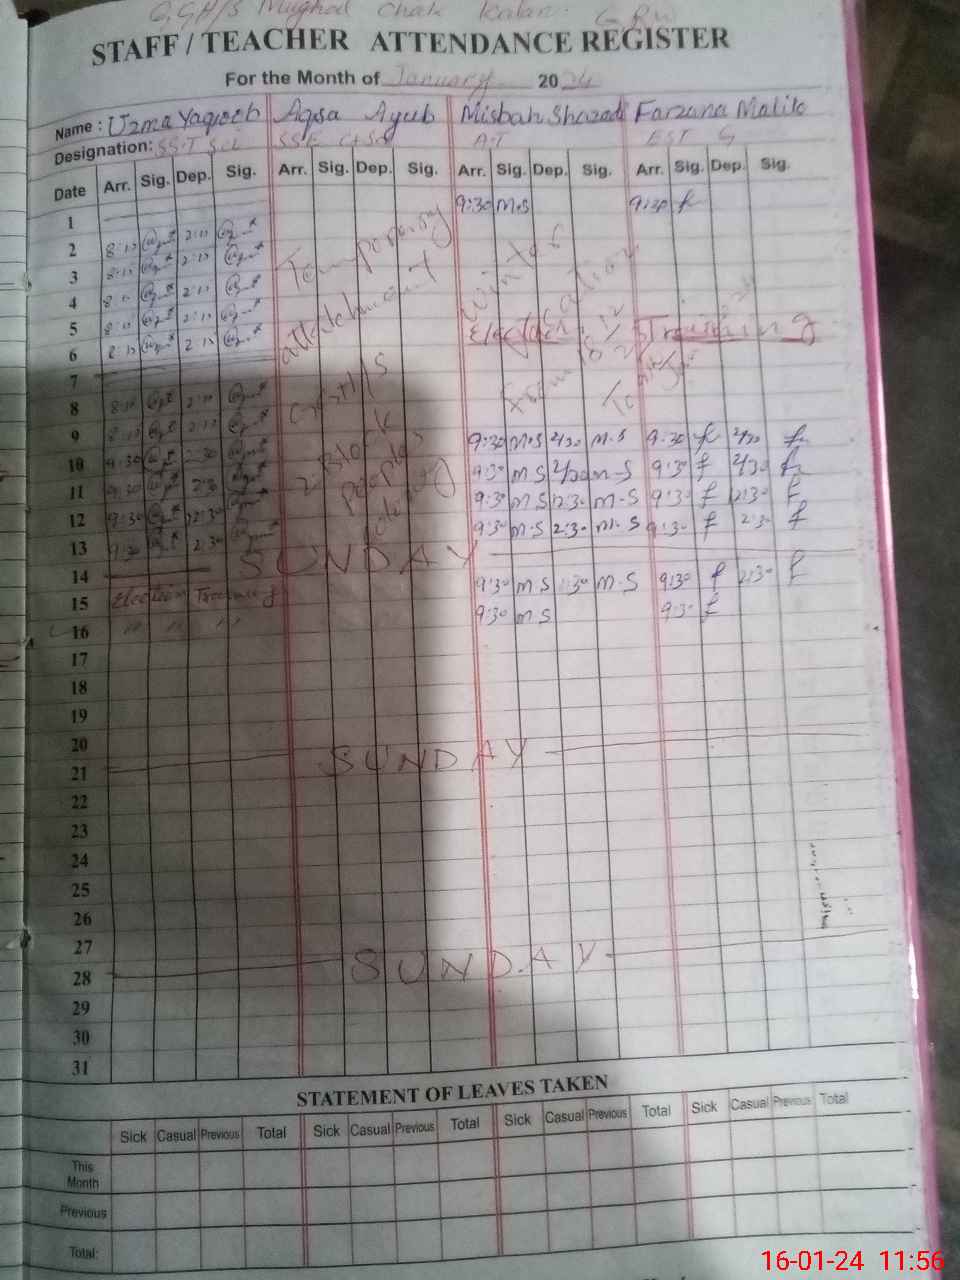 G.G.H/S Mughal Chak Kalan. GRW
STAFF / TEACHER ATTENDANCE REGISTER
For the Month of January 2024
Name: Uzma Yaqoob Aqsa Ayub Misbah Shazadi Farzana Malik
Designation: SST Sci SSE A.T EST G
Date Arr. Sig. Dep. Sig. Arr. Sig. Dep. Sig. Arr. Sig. Dep. Sig. Arr. Sig. Dep. Sig.
1 9:30 M.S 9:30 f
2 8:10 2:10
3 8:10 2:10
4 8:10 2:10
5 8:10 2:10
6 8:10 2:10
Temporary
attachment
Winter
Vacation
Election Training
From 18-12
To
7
8 8:10 2:10
9 8:10 2:10 9:30 M.S 2:30 M.S 9:30 f 2:30 f
10 9:30 2:30 9:30 M S 2:30 M-S 9:30 f 2:30 f
11 9:30 2:30 9:30 M S 2:30 M-S 9:30 f 2:30 f
12 9:30 2:30 9:30 M-S 2:30 M-S 9:30 f 2:30 f
13 9:30 2:30
Block
peoples
colony
14 SUNDAY
15 Election Training 9:30 M-S 2:30 M-S 9:30 f 2:30 f
16 " " " 9:30 M S 9:30 f
17
18
19
20
21 SUNDAY
22
23
24
25
26
27
28 SUNDAY
29
30
31
STATEMENT OF LEAVES TAKEN
Sick Casual Previous Total Sick Casual Previous Total Sick Casual Previous Total Sick Casual Previous Total
This Month
Previous
Total:
16-01-24 11:56